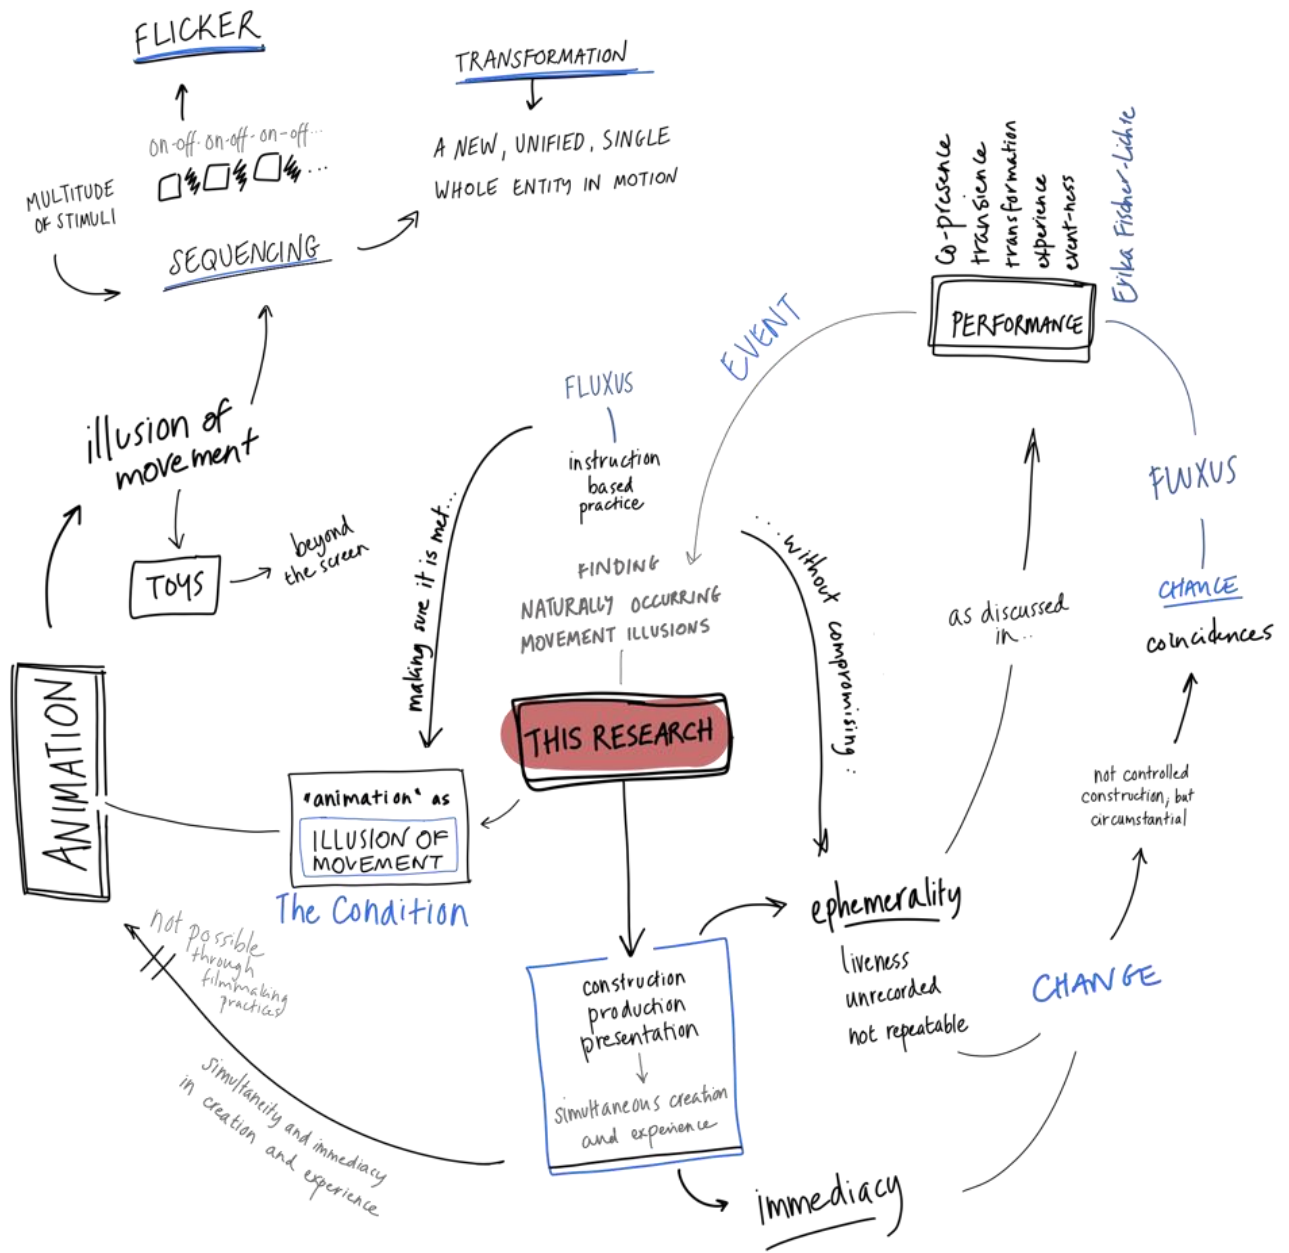 FLICKER
on-off-on-off-on-off...
MULTITUDE
OF STIMULI
...
SEQUENCING
TRANSFORMATION
A NEW, UNIFIED, SINGLE
WHOLE ENTITY IN MOTION
illusion of
movement
TOYS
beyond
the screen
ANIMATION
FLUXUS
instruction
based
practice
making sure it is met...
FINDING
NATURALLY OCCURRING
MOVEMENT ILLUSIONS
THIS RESEARCH
"animation" as
ILLUSION OF
MOVEMENT
The Condition
EVENT
Co-presence
transience
transformation
experience
event-ness
Erika Fischer-Lichte
PERFORMANCE
FLUXUS
CHANCE
coincidences
not controlled
construction, but
circumstantial
as discussed
in..
...without compromising:
ephemerality
liveness
unrecorded
not repeatable
CHANGE
construction
production
presentation
simultaneous creation
and experience
immediacy
not possible
through
filmmaking
practices
simultaneity and immediacy
in creation and experience